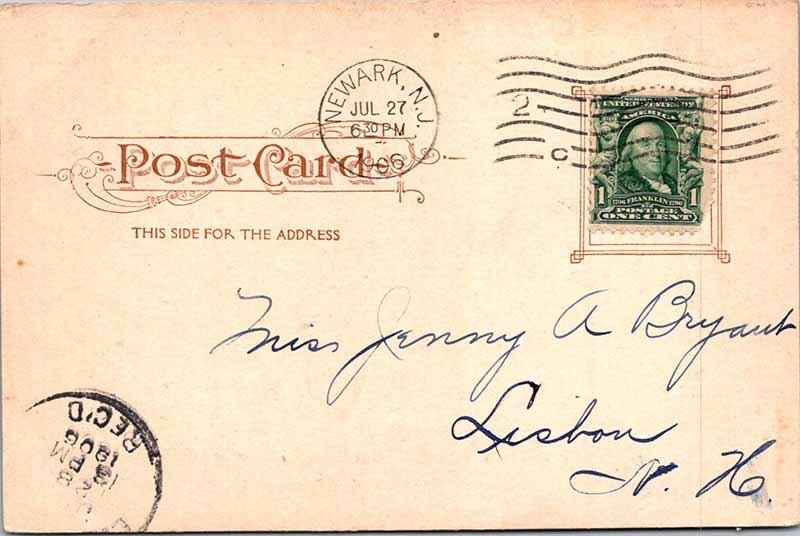 NEWARK, N.J.
JUL 27
6 30 PM
1906
2
C
UNITED STATES OF
AMERICA
1 1706 FRANKLIN 1790 1
POSTAGE
ONE CENT
Post Card
THIS SIDE FOR THE ADDRESS
Miss Jenny A Bryant
Lisbon
N. H.
REC'D
1906
PM
28